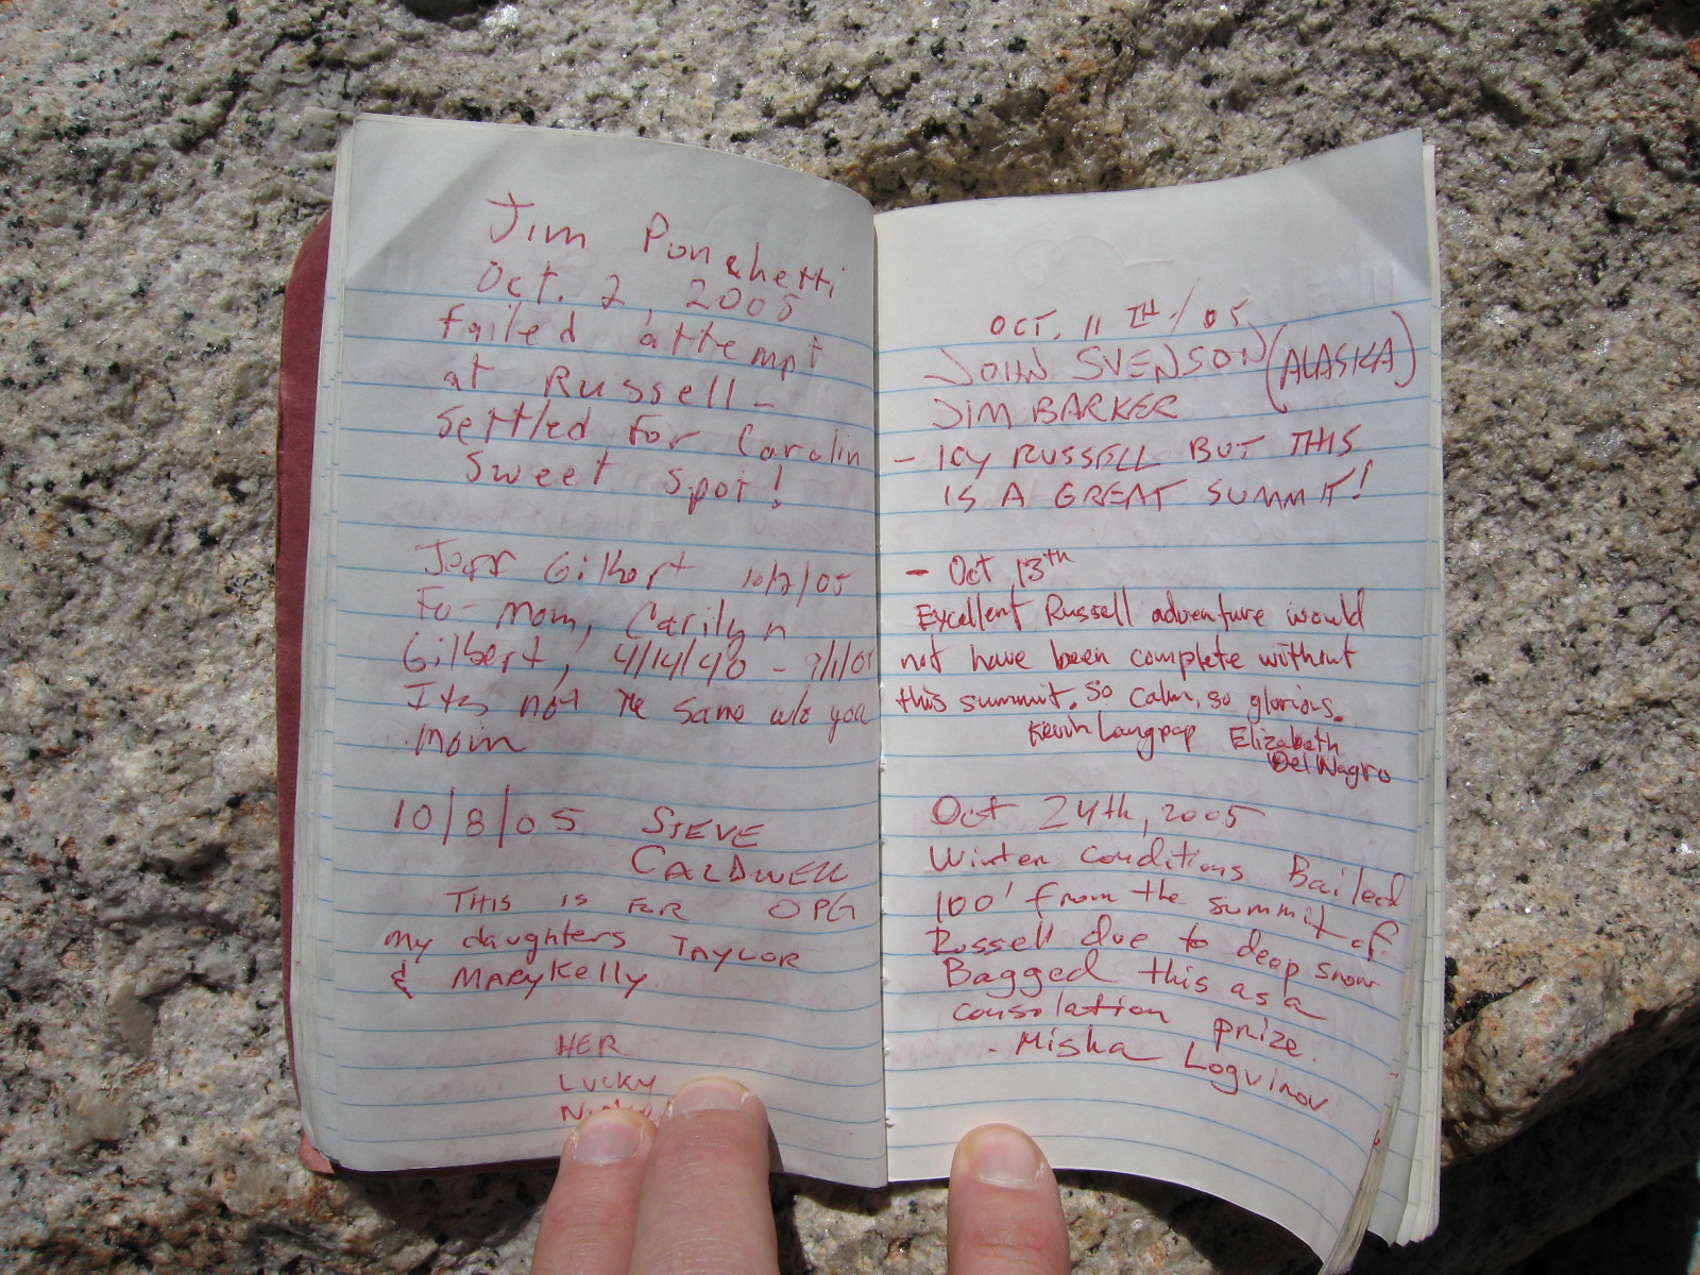 Jim Ponchetti
Oct. 2, 2005
failed attempt
at Russell -
Settled for Carolin
Sweet spot!
Jeff Gilbert 10/2/05
For mom, Carilyn
Gilbert, 4/14/40 - 9/1/05
Its not the same w/o you
mom
10/8/05 STEVE
CALDWELL
THIS IS FOR OPG
my daughters TAYLOR
& MARYKELLY.
HER
LUCKY
OCT. 11TH/05
JOHN SVENSON (ALASKA)
JIM BARKER
- ICY RUSSELL BUT THIS
IS A GREAT SUMMIT!
- Oct 13th
Excellent Russell adventure would
not have been complete without
this summit. So calm, so glorious.
Kevin Langpap Elizabeth
DelNagro
Oct 24th, 2005
Winter conditions. Bailed
100' from the summit of
Russell due to deep snow
Bagged this as a
consolation prize.
- Misha Logvinov